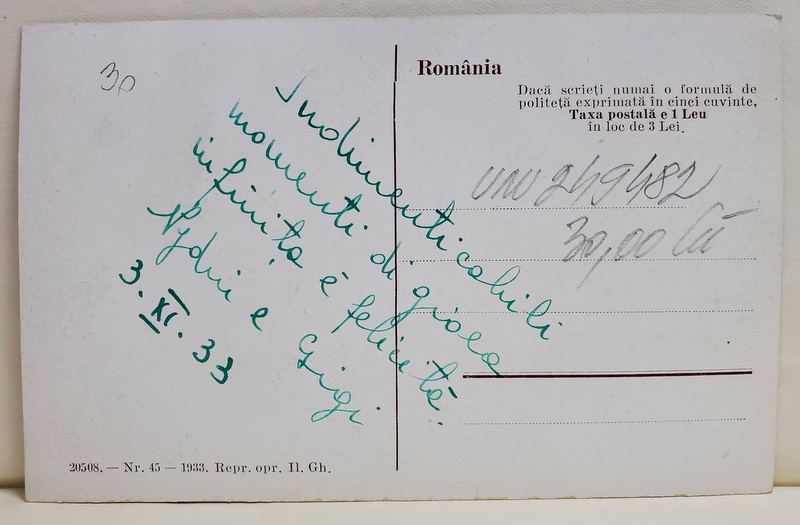 30
România
Dacă scrieți numai o formulă de
politeță exprimată în cinci cuvinte,
Taxa postală e 1 Leu
în loc de 3 Lei.
249482
30,00 lei
Indimenticabili
momenti di gioea
infinita e felicità.
e Gigi
3.XI.33
20508. — Nr. 45 — 1933. Repr. opr. Il. Gh.